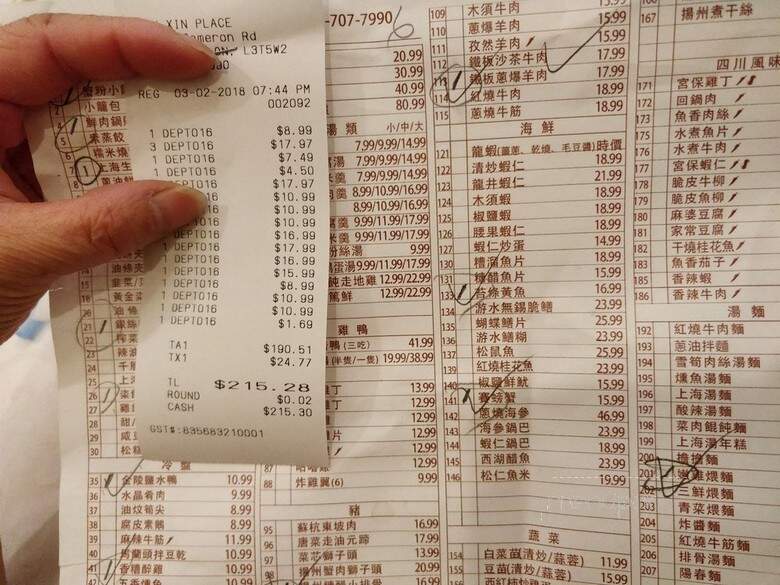 XIN PLACE
ON. L3T5W2
REG 03-02-2018 07:44 PM
002092
1 DEPT016 $8.99
3 DEPT016 $17.97
1 DEPT016 $7.49
1 DEPT016 $4.50
$17.97
$10.99
$10.99
$10.99
$16.99
1 DEPT016 $17.99
1 DEPT016 $16.99
1 DEPT016 $15.99
1 DEPT016 $8.99
1 DEPT016 $10.99
1 DEPT016 $10.99
1 DEPT016 $1.69
TA1 $190.51
TX1 $24.77
TL $215.28
ROUND $0.02
CASH $215.30
GST#:835683210001
小籠包
鮮肉鍋
素蒸餃
糯米燒
冷盤
35 金陵鹽水鴨 10.99
36 水晶肴肉 9.99
37 油炆筍尖 8.99
38 腐皮素鵝 8.99
39 麻辣牛筋 11.99
40 馬蘭頭拌豆乾 10.99
41 香糟醉雞 10.99
-707-7990
20.99
30.99
40.99
80.99
湯類 小/中/大
7.99/9.99/14.99
7.99/9.99/14.99
8.99/10.99/16.99
8.99/10.99/16.99
9.99/11.99/17.99
9.99/11.99/17.99
9.99
9.99/11.99/17.99
12.99/22.99
12.99/22.99
雞鴨
鴨 (三吃) 41.99
(半隻/一隻) 19.99/38.99
13.99
12.99
12.99
12.99
12.99
12.99
88 炸雞翼(6) 9.99
豬
95 蘇杭東坡肉 16.99
96 唐菜走油元蹄 17.99
97 菜芯獅子頭 13.99
揚州蟹肉獅子頭 20.99
109 木須牛肉 15.99
110 蔥爆羊肉 15.99
111 孜然羊肉 15.99
112 鐵板沙茶牛肉 17.99
鐵板蔥爆羊肉 17.99
114 紅燒牛肉 18.99
115 蔥燒牛筋 18.99
海鮮
121 龍蝦(薑蔥、乾燒、毛豆醬) 時價
122 清炒蝦仁 18.99
123 龍井蝦仁 21.99
124 木須蝦 18.99
125 椒鹽蝦 18.99
126 腰果蝦仁 18.99
127 蝦仁炒蛋 14.99
130 糟溜魚片 18.99
131 糖醋魚片 15.99
133 苔條黃魚 16.99
134 游水無錫脆鱔 23.99
135 蝴蝶鱔片 25.99
136 游水鱔糊 23.99
137 松鼠魚 25.99
139 紅燒桂花魚 23.99
140 椒鹽鮮魷 15.99
141 賽螃蟹 15.99
142 蔥燒海參 46.99
143 海參鍋巴 23.99
144 蝦仁鍋巴 18.99
145 西湖醋魚 23.99
146 松仁魚米 19.99
蔬菜
154 白菜苗(清炒/蒜蓉) 11.99
155 豆苗(清炒/蒜蓉) 15.99
167 揚州煮干絲
四川風味
171 宮保雞丁
172 回鍋肉
173 魚香肉絲
175 水煮魚片
176 水煮牛肉
177 宮保蝦仁
178 脆皮牛柳
179 脆皮魚柳
180 麻婆豆腐
181 家常豆腐
182 干燒桂花魚
183 魚香茄子
185 香辣蝦
186 香辣牛肉
湯麵
192 紅燒牛肉麵
193 蔥油拌麵
194 雪筍肉絲湯麵
195 燻魚湯麵
196 上海湯麵
197 酸辣湯麵
198 菜肉餛飩麵
199 上海湯年糕
200 擔擔麵
201 嫩雞煨麵
202 三鮮煨麵
203 青菜煨麵
204 炸醬麵
205 紅燒牛筋麵
206 排骨湯麵
207 陽春麵